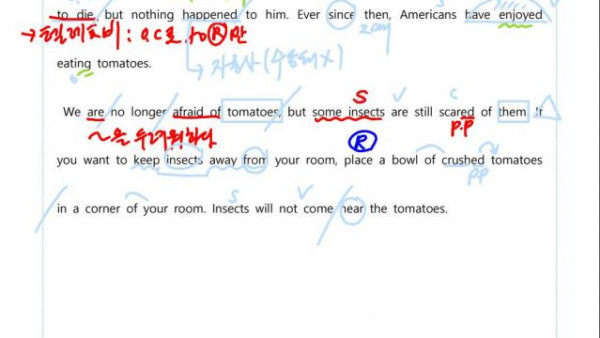 to die, but nothing happened to him. Ever since then, Americans have enjoyed
→ : oc로 to Ⓡ만
eating tomatoes.
→ 자동사 (수동태 X)
S V C
We are no longer afraid of tomatoes, but some insects are still scared of them. If
~을 두려워하다 Ⓡ p.p
you want to keep insects away from your room, place a bowl of crushed tomatoes
p.p
S V
in a corner of your room. Insects will not come near the tomatoes.